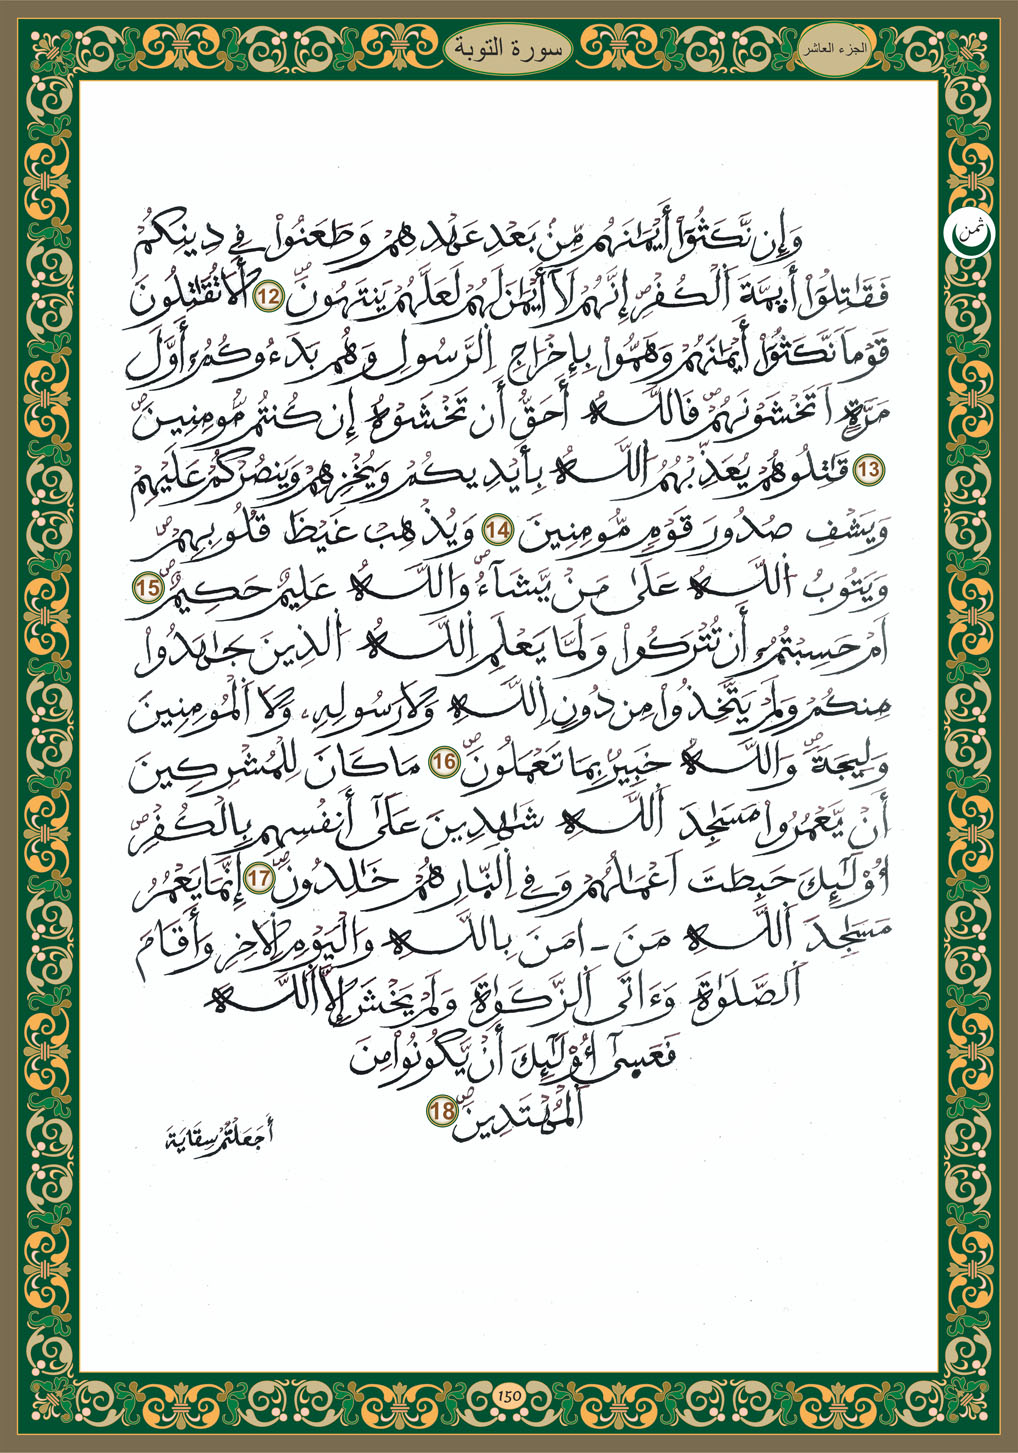 الجزء العاشر
سورة التوبة
ثمن
وَإِن نَّكَثُوٓاْ أَيْمَٰنَهُم مِّنۢ بَعْدِ عَهْدِهِمْ وَطَعَنُواْ فِے دِينِكُمْ
فَقَٰتِلُوٓاْ أَيِمَّةَ اَ۬لْكُفْرِ إِنَّهُمْ لَآ أَيْمَٰنَ لَهُمْ لَعَلَّهُمْ يَنتَهُونَۖ 12 أَلَا تُقَٰتِلُونَ
قَوْماٗ نَّكَثُوٓاْ أَيْمَٰنَهُمْ وَهَمُّواْ بِإِخْرَاجِ اِ۬لرَّسُولِ وَهُم بَدَءُوكُمُۥٓ أَوَّلَ
مَرَّةٍ اَتَخْشَوْنَهُمْۖ فَاللَّهُ أَحَقُّ أَن تَخْشَوْهُ إِن كُنتُم مُّومِنِينَۖ
13 قَٰتِلُوهُمْ يُعَذِّبْهُمُ اُ۬للَّهُ بِأَيْدِيكُمْ وَيُخْزِهِمْ وَيَنصُرْكُمْ عَلَيْهِمْ
وَيَشْفِ صُدُورَ قَوْمٖ مُّومِنِينَ 14 وَيُذْهِبْ غَيْظَ قُلُوبِهِمْۖ
وَيَتُوبُ اُ۬للَّهُ عَلَىٰ مَنْ يَّشَآءُۖ وَاللَّهُ عَلِيمٌ حَكِيمٌۖ 15
اَمْ حَسِبْتُمُۥٓ أَن تُتْرَكُواْ وَلَمَّا يَعْلَمِ اِ۬للَّهُ اُ۬لذِينَ جَٰهَدُواْ
مِنكُمْ وَلَمْ يَتَّخِذُواْ مِن دُونِ اِ۬للَّهِ وَلَا رَسُولِهِۦ وَلَا اَ۬لْمُومِنِينَ
وَلِيجَةٗۖ وَاللَّهُ خَبِيرُۢ بِمَا تَعْمَلُونَۖ 16 مَا كَانَ لِلْمُشْرِكِينَ
أَنْ يَّعْمُرُواْ مَسَٰجِدَ اَ۬للَّهِ شَٰهِدِينَ عَلَىٰٓ أَنفُسِهِم بِالْكُفْرِۖ
أُوْلَٰٓئِكَ حَبِطَتَ اَعْمَٰلُهُمْ وَفِے اِ۬لنَّارِ هُمْ خَٰلِدُونَۖ 17 إِنَّمَا يَعْمُرُ
مَسَٰجِدَ اَ۬للَّهِ مَنَ ـ اٰمَنَ بِاللَّهِ وَالْيَوْمِ اِ۬لَاخِرِ وَأَقَامَ
اَ۬لصَّلَوٰةَ وَءَاتَى اَ۬لزَّكَوٰةَ وَلَمْ يَخْشَ إِلَّا اَ۬للَّهَ
فَعَسَىٰٓ أُوْلَٰٓئِكَ أَنْ يَّكُونُواْ مِنَ
اَ۬لْمُهْتَدِينَۖ 18
أَجَعَلْتُمْ سِقَايَةَ
150